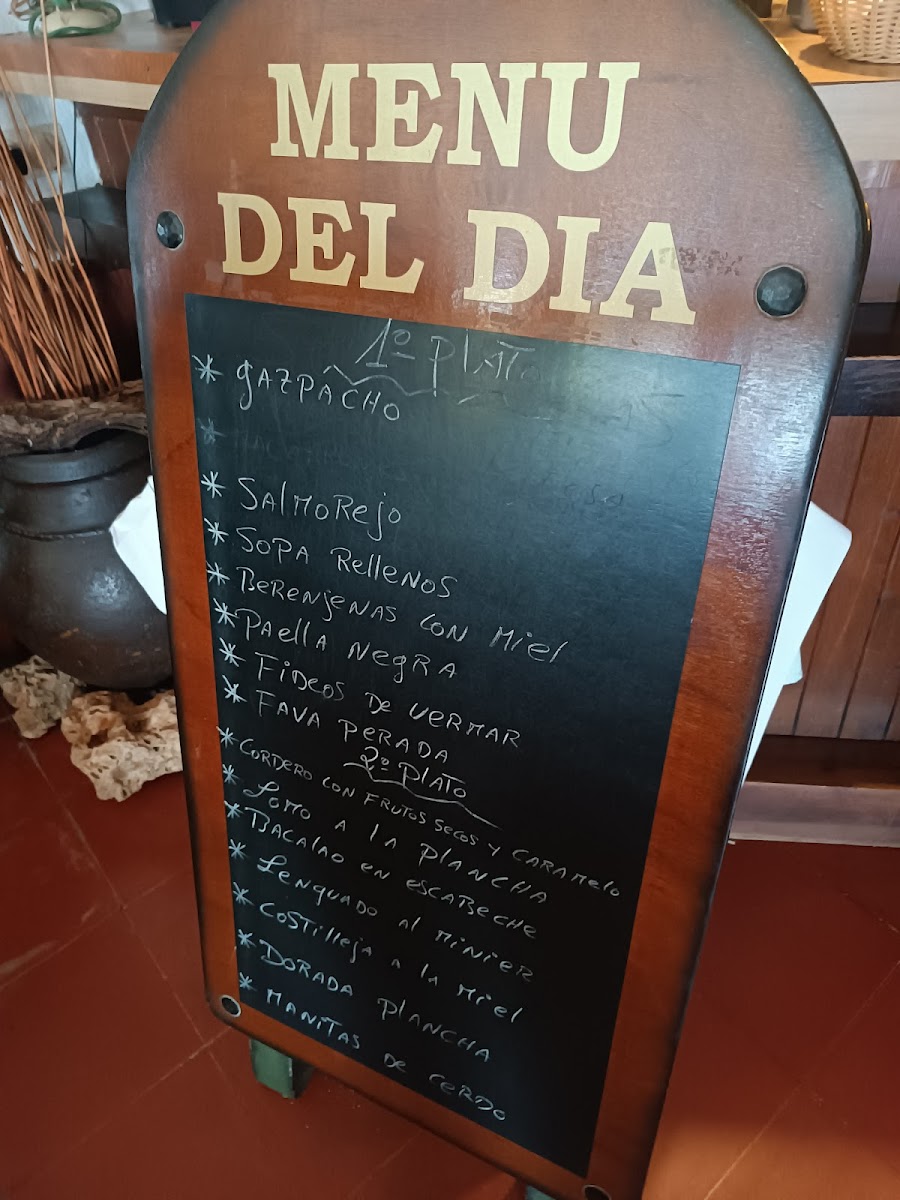 MENU
DEL DIA
1º PLATO
* GAZPACHO
* SALMOREJO
* SOPA RELLENOS
* BERENJENAS CON MIEL
* PAELLA NEGRA
* FIDEOS DE VERMAR
* FAVA PERADA
2º PLATO
* CORDERO CON FRUTOS SECOS Y CARAMELO
* LOMO A LA PLANCHA
* BACALAO EN ESCABECHE
* LENGUADO AL MINIER
* COSTILLEJA A LA MIEL
* DORADA PLANCHA
* MANITAS DE CERDO